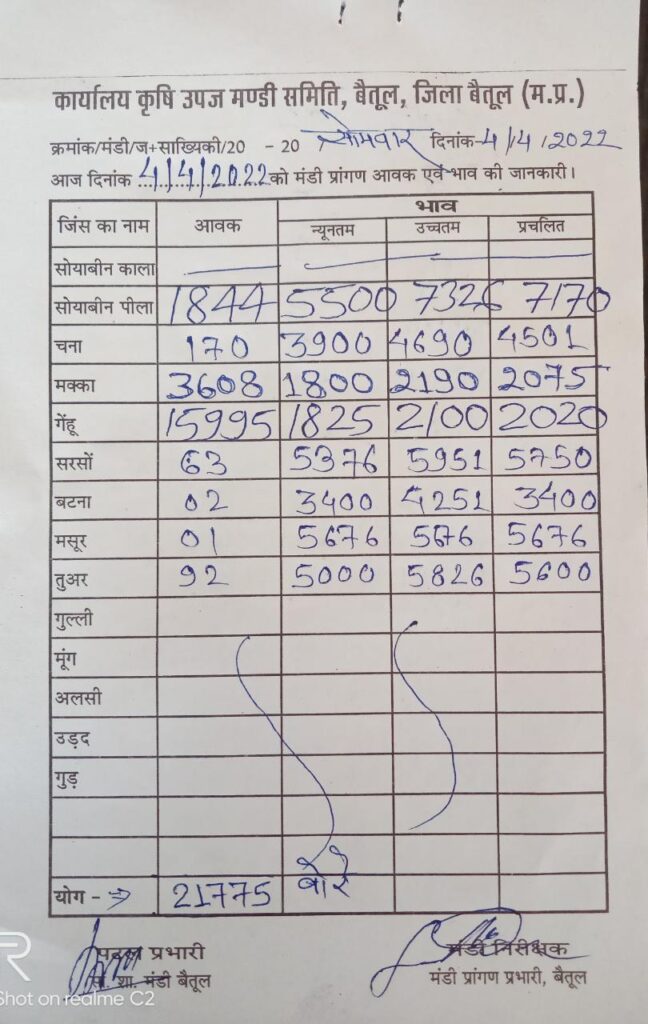 कार्यालय कृषि उपज मण्डी समिति, बैतूल, जिला बैतूल (म.प्र.)
क्रमांक/मंडी/ज+साख्यिकी/20 - 20 सोमवार दिनांक-4/4/2022
आज दिनांक 4/4/2022 को मंडी प्रांगण आवक एवं भाव की जानकारी।
जिंस का नाम आवक भाव
न्यूनतम उच्चतम प्रचलित
सोयाबीन काला
सोयाबीन पीला 1844 5500 7326 7170
चना 170 3900 4690 4501
मक्का 3608 1800 2190 2075
गेंहू 15995 1825 2100 2020
सरसों 63 5376 5951 5750
बटना 02 3400 4251 3400
मसूर 01 5676 5676 5676
तुअर 92 5000 5826 5600
गुल्ली
मूंग
अलसी
उड़द
गुड़
योग - 21775 बोरे
प्रभारी मंडी निरीक्षक
शा. मंडी बैतूल मंडी प्रांगण प्रभारी, बैतूल
Shot on realme C2